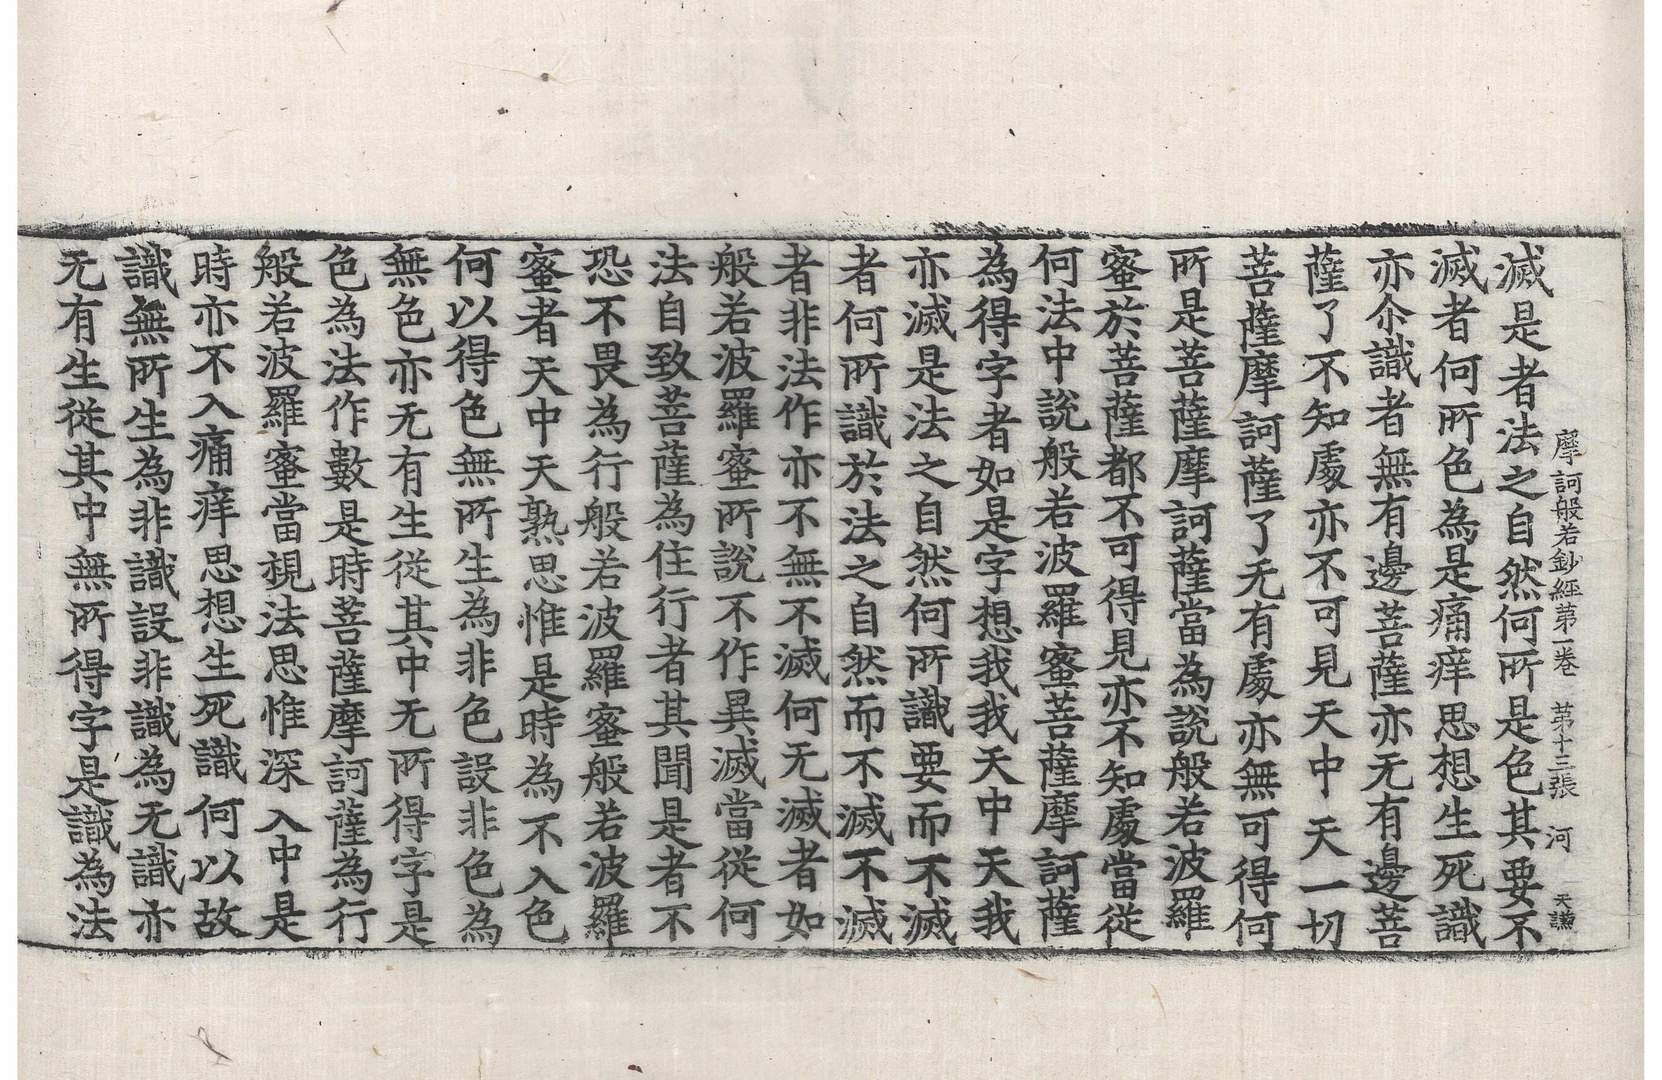 摩訶般若鈔經第一卷　第十三張　河　天謙
滅是者法之自然何所是色其要不
滅者何所色為是痛痒思想生死識
亦尒識者無有邊菩薩亦无有邊菩
薩了不知處亦不可見天中天一切
菩薩摩訶薩了无有處亦無可得何
所是菩薩摩訶薩當為說般若波羅
蜜於菩薩都不可得見亦不知處當從
何法中說般若波羅蜜菩薩摩訶薩
為得字者如是字想我我天中天我
亦滅是法之自然何所識要而不滅
者何所識於法之自然而不滅不滅
者非法作亦不無不滅何无滅者如
般若波羅蜜所說不作異滅當從何
法自致菩薩為住行者其聞是者不
恐不畏為行般若波羅蜜般若波羅
蜜者天中天熟思惟是時為不入色
何以得色無所生為非色設非色為
無色亦无有生從其中无所得字是
色為法作數是時菩薩摩訶薩為行
般若波羅蜜當視法思惟深入中是
時亦不入痛痒思想生死識何以故
識無所生為非識設非識為无識亦
无有生從其中無所得字是識為法